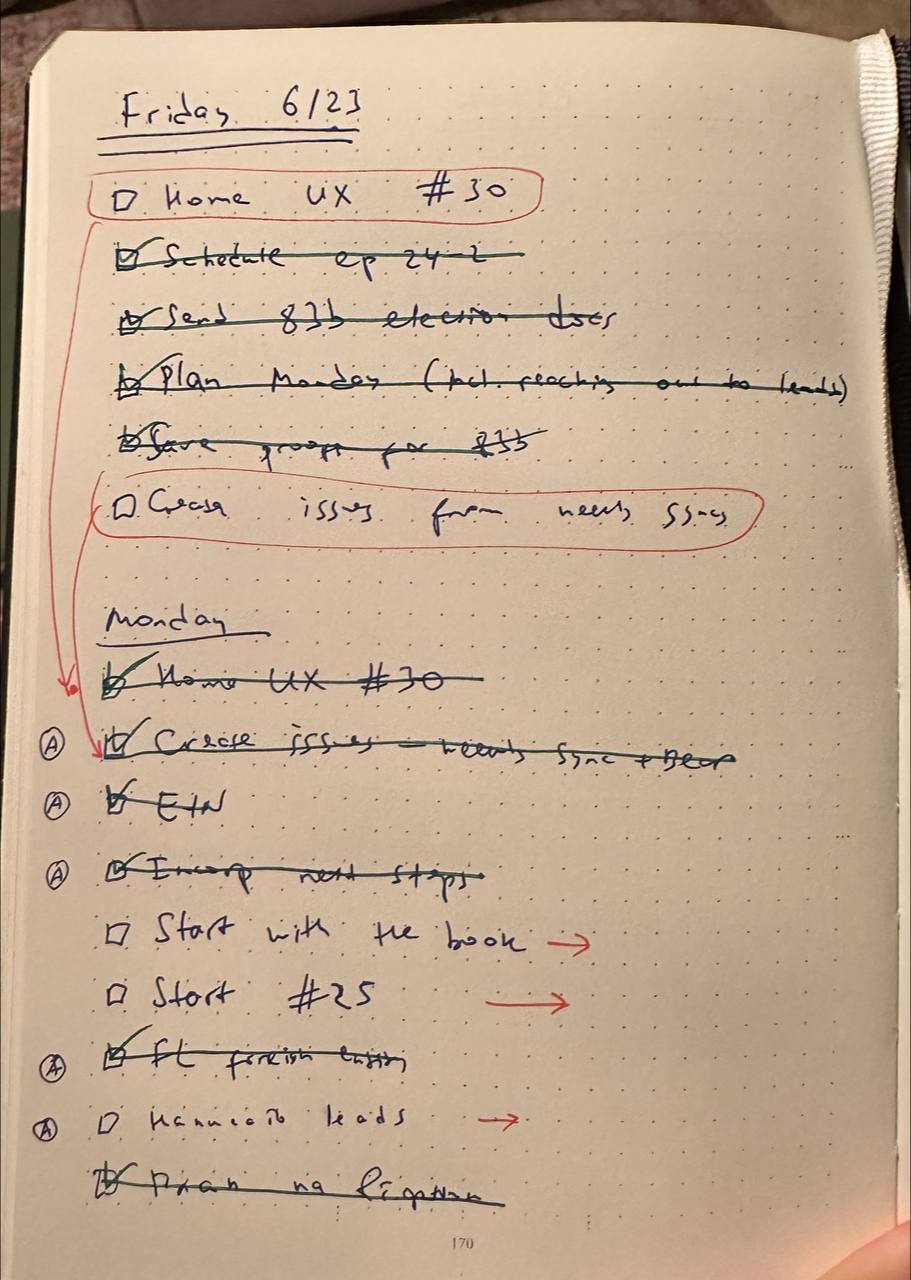 Friday 6/23
Home UX #30
Schedule ep 24-2
Send 83b election docs
Plan Monday (incl. reaching out to leads)
Save proofs for 83b
Create issues from needs sync
Monday
Home UX #30
A Create issues - needs sync + Bear
A EIN
A Incorp next steps
Start with the book →
Start #25 →
A FL foreign entity
A Написать leads →
План на
170